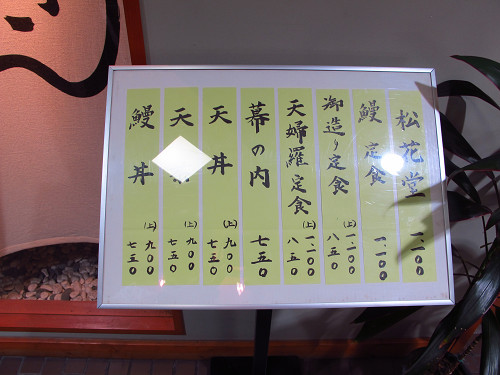 松花堂 一、一〇〇
鰻定食 一、一〇〇
御造り定食 (上)一、一〇〇 八五〇
天婦羅定食 (上)一、一〇〇 八五〇
幕の内 七五〇
天丼 (上)九〇〇 七五〇
天 (上)九〇〇 七五〇
鰻丼 (上)九〇〇 七五〇